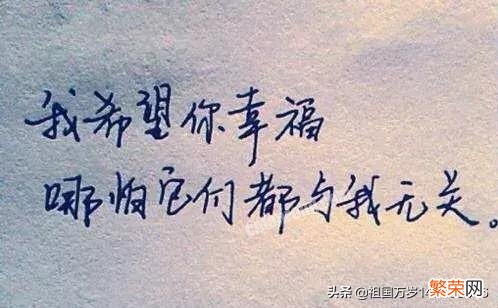 我希望你幸福
哪怕它们都与我无关。
头条 @祖国万岁14
繁荣网